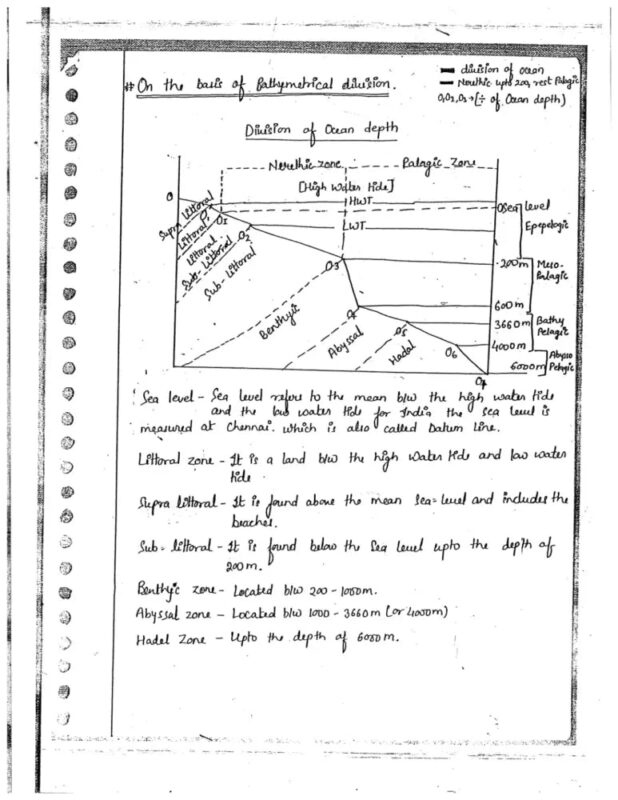 # On the basis of Bathymetrical division.
division of ocean
Nerithic upto 200, rest Palagic
O₁O₂,O₃→(÷ of Ocean depth)
Division of Ocean depth
Nerithic zone Palagic Zone
[High Water Tide]
O HWT 0 Sea level
Supra Littoral O₁ Epepelagic
Littoral
Littoral O₂ LWT
Sub-Littoral
Sub-Littoral O₃ 200m Meso-Palagic
Benthyic 600m
Abyssal O₅ 3660m Bathy Pelagic
Hadal O₆ 4000m
6000m Abysso Pelagic
Sea level - Sea level refers to the mean b/w the high water tide
and the low water tide for India the sea level is
measured at Chennai. Which is also called Datum Line.
Littoral zone - It is a land b/w the high water tide and low water
tide
Supra littoral - It is found above the mean sea-level and includes the
beaches.
Sub-littoral - It is found below the sea level upto the depth of
200m.
Benthyic zone - Located b/w 200 - 1000m.
Abyssal zone - Located b/w 1000 - 3660m (or 4000m)
Hadel Zone - Upto the depth of 6000m.